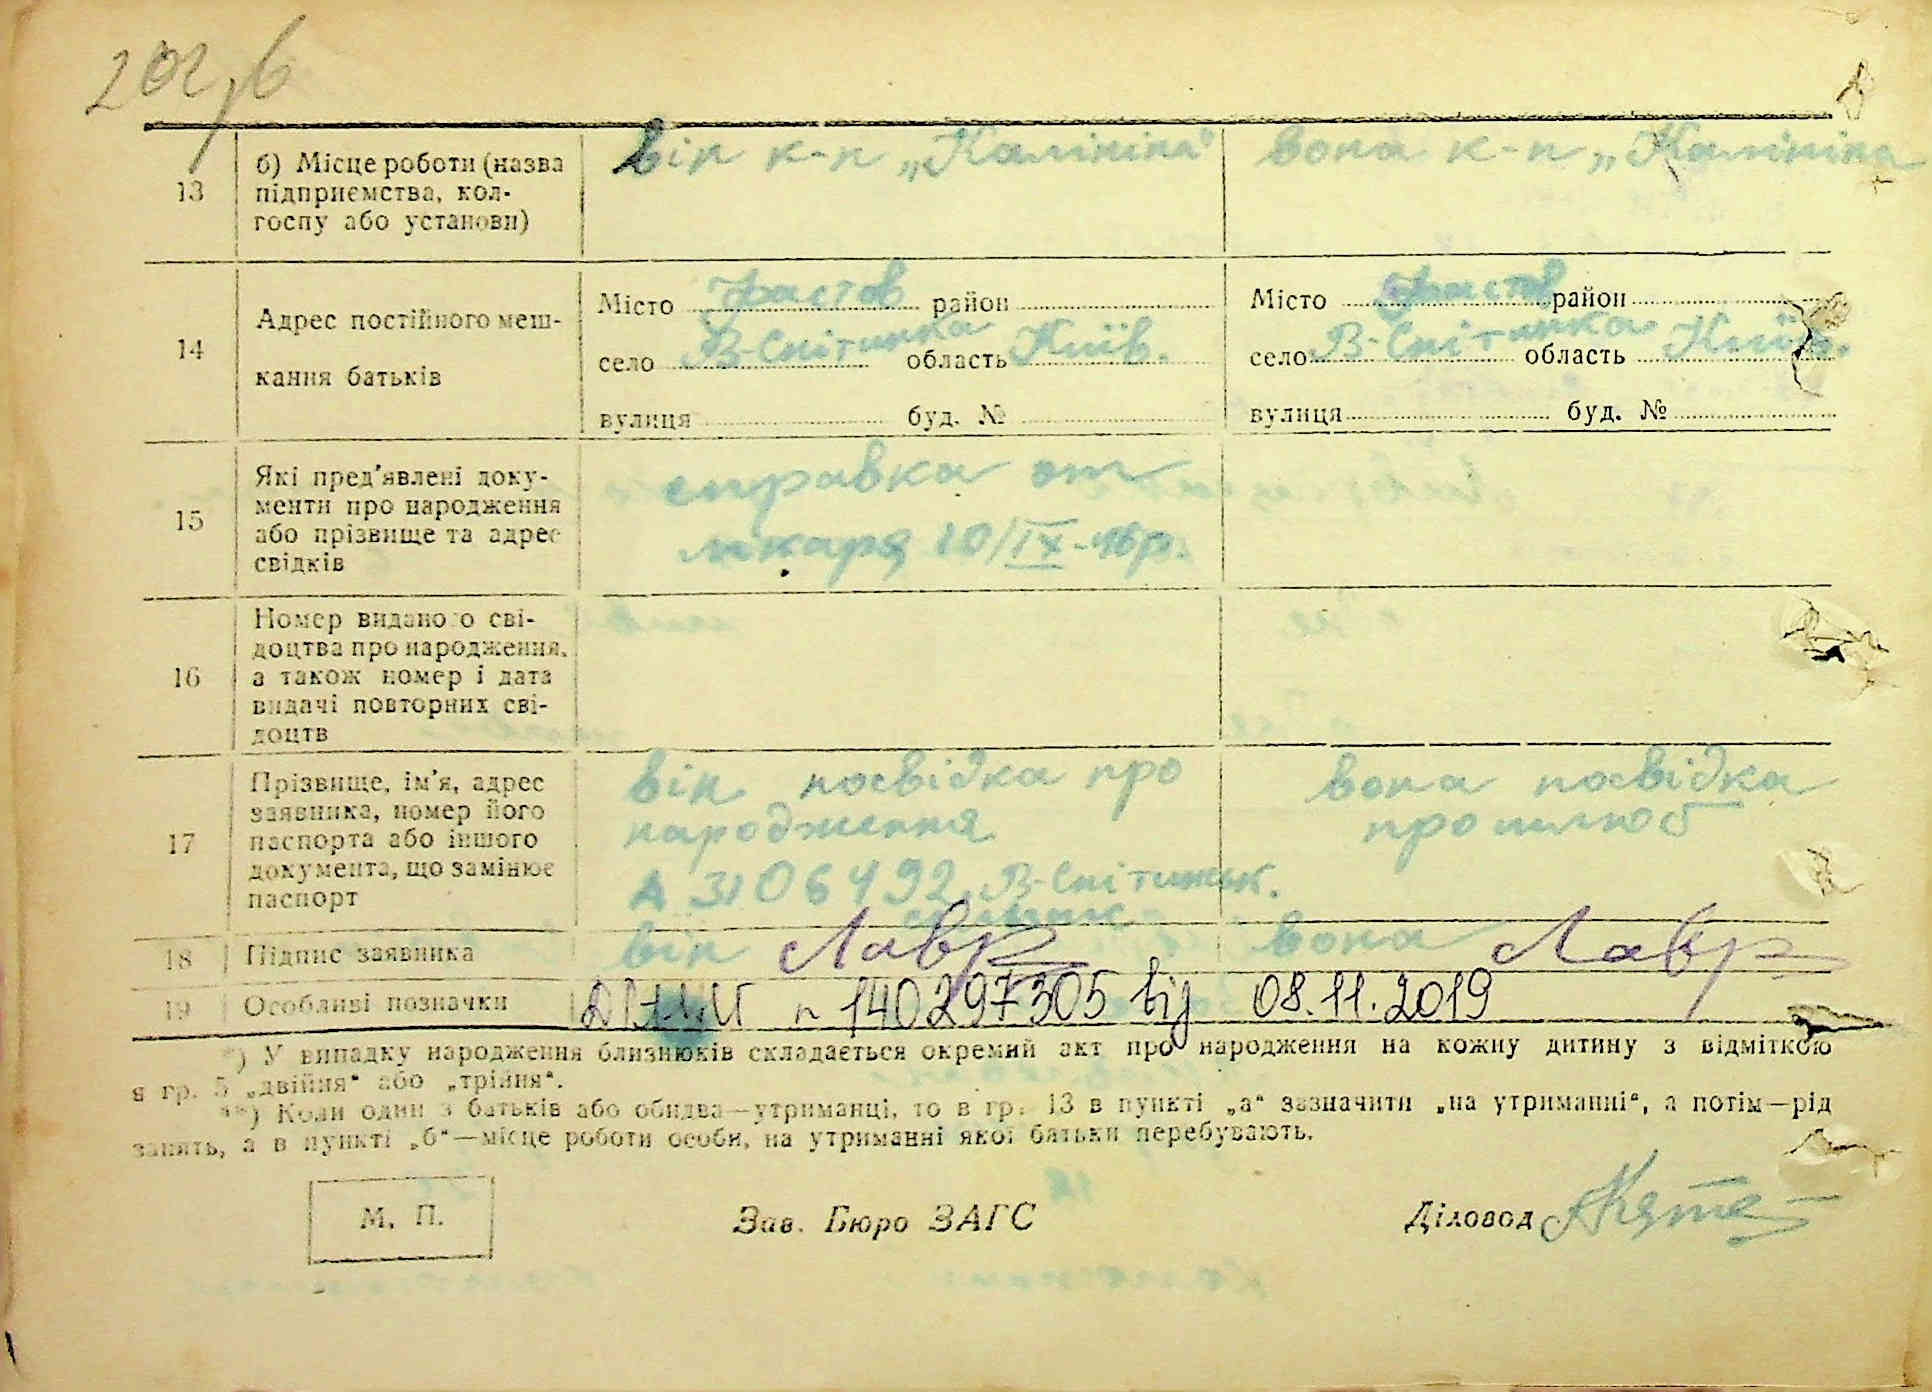 13
б) Місце роботи (назва
підприємства, кол-
госпу або установи)
він к-п „Калініна"
вона к-п „Калініна
14
Адрес постійного меш-
кання батьків
Місто Фастов район
село В-Снітинка область Київ.
вулиця буд. №
Місто Фастов район
село В-Снітинка область Київ.
вулиця буд. №
15
Які пред'явлені доку-
менти про народження
або прізвище та адрес
свідків
справка от
лікаря 10/IX-46р.
16
Номер виданого сві-
доцтва про народження,
а також номер і дата
видачі повторних сві-
доцтв
17
Прізвище, ім'я, адрес
заявника, номер його
паспорта або іншого
документа, що замінює
паспорт
він посвідка про
народження
А 3106492 В-Снітинськ.
вона посвідка
про шлюб
18
Підпис заявника
він Лавр
вона Лавр
19
Особливі позначки
n 140297305 від 08.11.2019
*) У випадку народження близнюків складається окремий акт про народження на кожну дитину з відміткою
в гр. 5 „двійня" або „трійня".
**) Коли один з батьків або обидва—утриманці, то в гр. 13 в пункті „а" зазначити „на утриманні", а потім—рід
занять, а в пункті „б"—місце роботи особи, на утриманні якої батьки перебувають.
М. П.
Зав. Бюро ЗАГС
Діловод